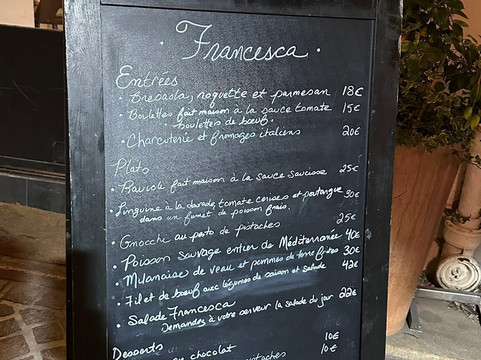 · Francesca ·
Entrées
· Bresaola, roquette et parmesan 18€
· Boulettes fait maison à la sauce tomate 15€
boulettes de bœuf.
· Charcuterie et fromages italiens 20€
Plats
· Ravioli fait maison à la sauce saucisse 25€
· Linguine à la dorade, tomate cerises et poutargue 30€
dans un fumet de poisson frais.
· Gnocchi au pesto de pistaches 25€
· Poisson sauvage entier de Méditerranée 40€
· Milanaise de veau et pommes de terre frites 30€
· Filet de bœuf avec légumes de saison et salade 42€
· Salade Francesca 22€
Demandez à votre serveur la salade du jour
Desserts
chocolat 10€
pistaches 10€